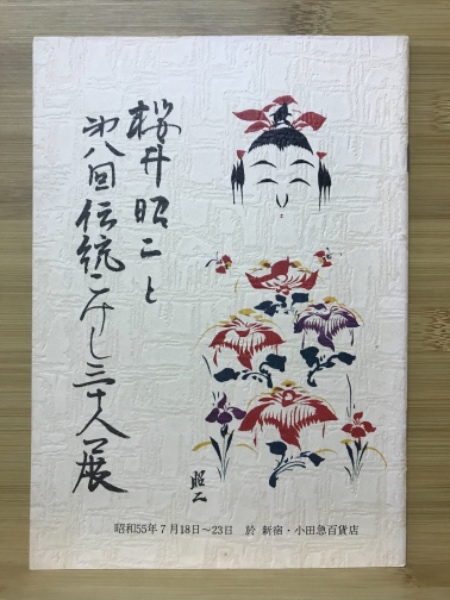 桜井昭二と
第八回伝統こけし三十人展
昭二
昭和55年7月18日～23日 於 新宿・小田急百貨店